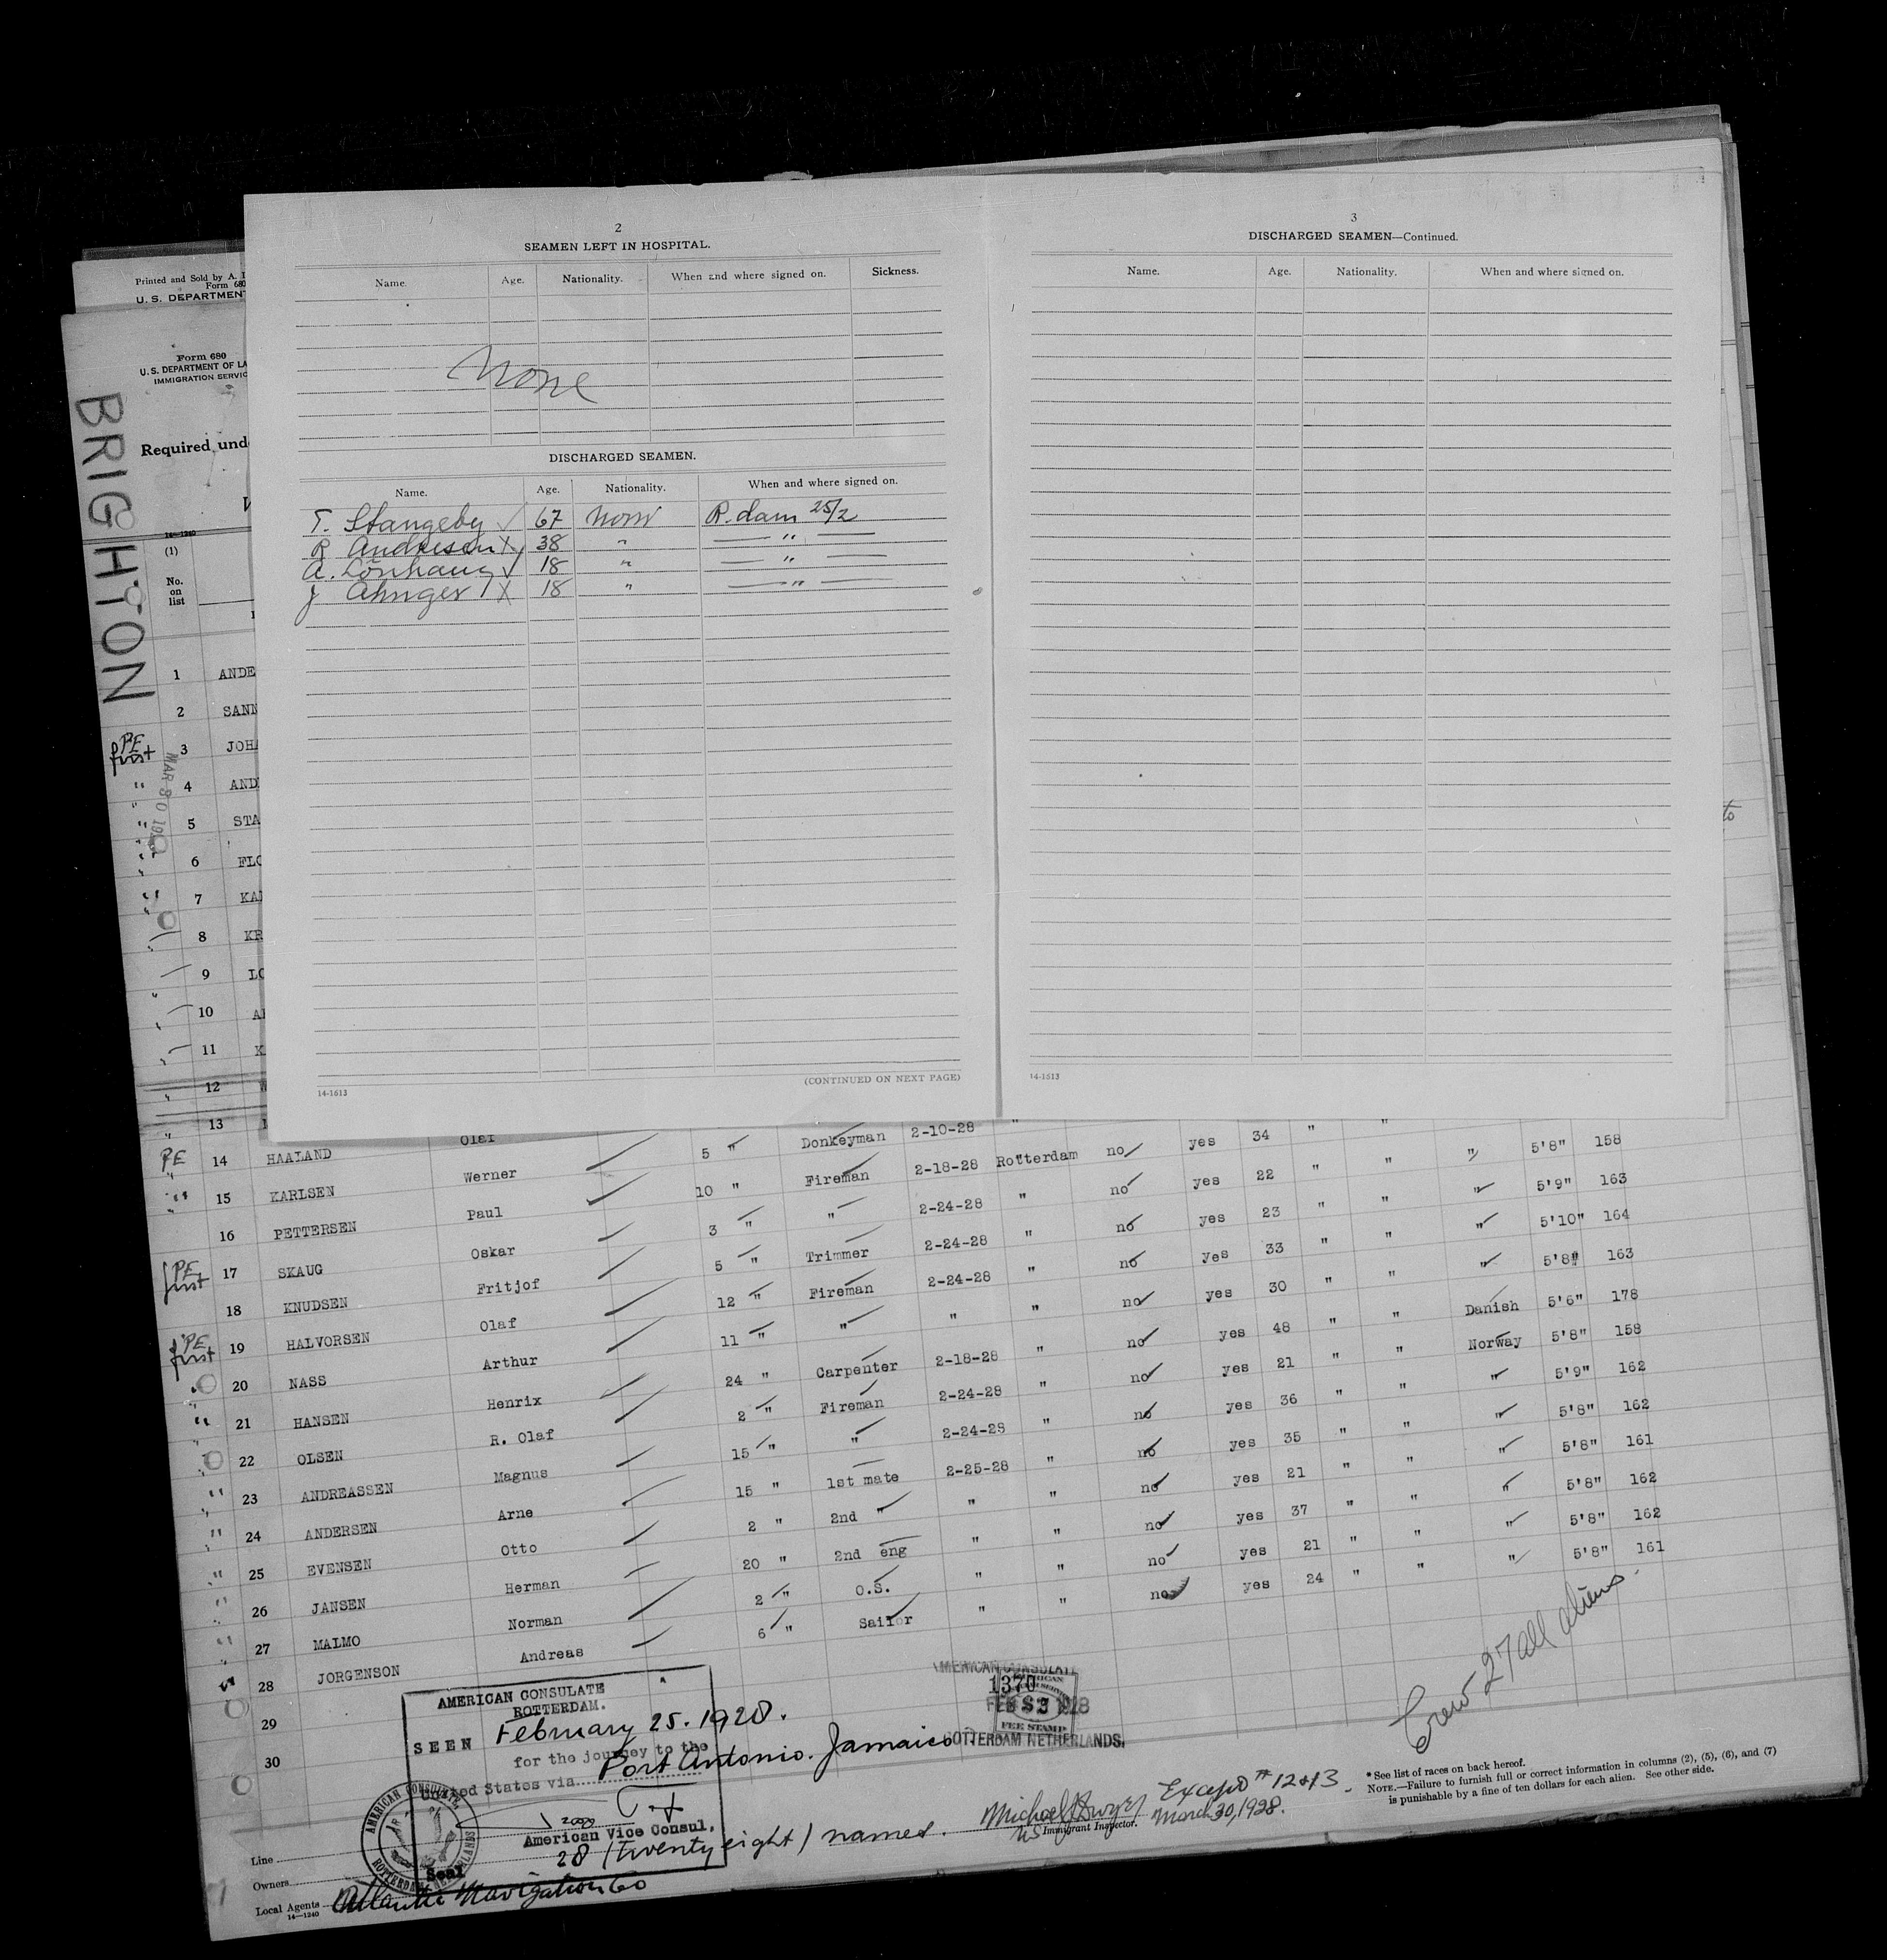 2
SEAMEN LEFT IN HOSPITAL.
Name. Age. Nationality. When and where signed on. Sickness.
None
DISCHARGED SEAMEN.
Name. Age. Nationality. When and where signed on.
T. Stangeby 67 Norw R.dam 25/2
R Andresen X 38 " — " —
A. Lönhaug 18 " — " —
J 18 " — " —
(CONTINUED ON NEXT PAGE)
14-1613
3
DISCHARGED SEAMEN—Continued.
Name. Age. Nationality. When and where signed on.
14-1613
Printed and Sold by A. I
Form 680
U. S. DEPARTMENT
Form 680
U. S. DEPARTMENT OF LA
IMMIGRATION SERVIC
BRIGHTON
Required und
14-1240
(1)
No.
on
list
1 ANDE
2 SANN
PE first 3 JOHA
" 4 AND
" 5 STA
" 6 FLO
" 7 KAR
8 KR
9 LO
10 A
11 K
12
13
PE 14 HAALAND Olaf 5 " Donkeyman 2-10-28 " no yes 34 " "
" 15 KARLSEN Werner 10 " Fireman 2-18-28 Rotterdam no yes 22 " " " 5'8" 158
16 PETTERSEN Paul 3 " " 2-24-28 " no yes 23 " " " 5'9" 163
PE first 17 SKAUG Oskar 5 " Trimmer 2-24-28 " no yes 33 " " " 5'10" 164
18 KNUDSEN Fritjof 12 " Fireman 2-24-28 " no yes 30 " " " 5'8" 163
PE first 19 HALVORSEN Olaf 11 " " " " no yes 48 " " Danish 5'6" 178
" 20 NASS Arthur 24 " Carpenter 2-18-28 " no yes 21 " " Norway 5'8" 158
" 21 HANSEN Henrix 2 " Fireman 2-24-28 " no yes 36 " " " 5'9" 162
22 OLSEN R. Olaf 15 " " 2-24-28 " no yes 35 " " " 5'8" 162
" 23 ANDREASSEN Magnus 15 " 1st mate 2-25-28 " no yes 21 " " " 5'8" 161
" 24 ANDERSEN Arne 2 " 2nd " " " no yes 37 " " " 5'8" 162
" 25 EVENSEN Otto 20 " 2nd eng " " no yes 21 " " " 5'8" 162
" 26 JANSEN Herman 2 " O.S. " " no yes 24 " " " 5'8" 161
" 27 MALMO Norman 6 " Sailor " "
" 28 JORGENSON Andreas
29
30
Crew 27 all aliens.
AMERICAN CONSULATE
ROTTERDAM.
SEEN February 25. 1928.
for the journey to the
United States via Port Antonio. Jamaica
American Vice Consul,
Seal
AMERICAN CONSULATE
ROTTERDAM NETHERLANDS
AMERICAN CONSULATE
1370
FEE STAMP
ROTTERDAM NETHERLANDS.
28 (twenty eight) names.
Michael J Dwyer
US Immigrant Inspector.
Except # 12 & 13.
March 30, 1928.
* See list of races on back hereof.
NOTE.—Failure to furnish full or correct information in columns (2), (5), (6), and (7)
is punishable by a fine of ten dollars for each alien. See other side.
Line
Owners
Local Agents Atlantic Navigation Co
14—1240